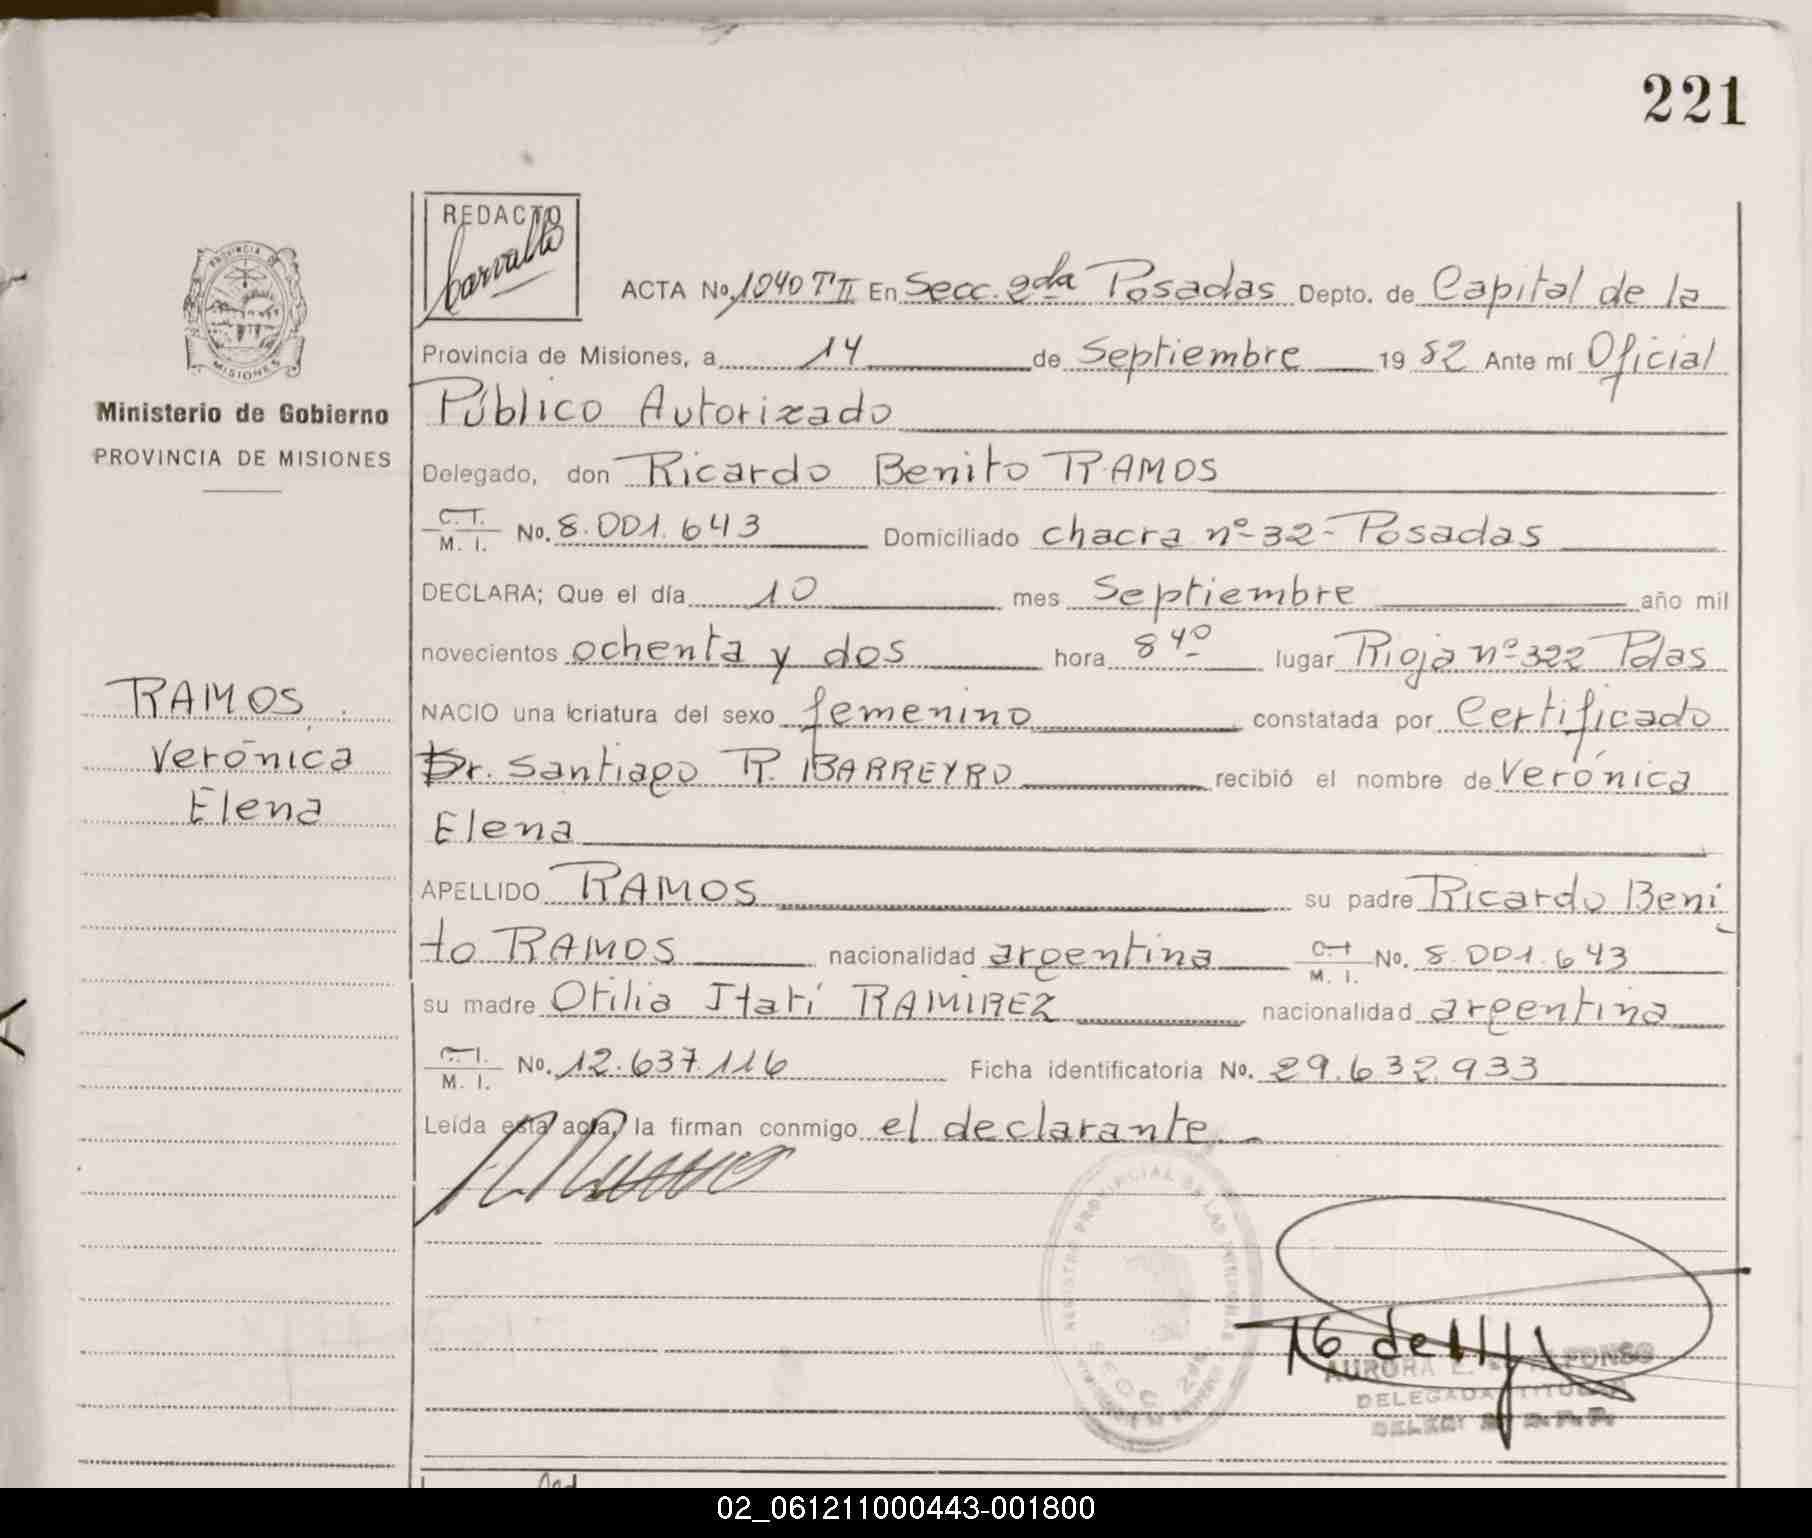 221
REDACTO
Carvallo
PROVINCIA DE
MISIONES
Ministerio de Gobierno
PROVINCIA DE MISIONES
ACTA No. 1040 T II En Secc. 2da Posadas Depto. de Capital de la
Provincia de Misiones, a 14 de Septiembre 19 82 Ante mí Oficial
Público Autorizado
Delegado, don Ricardo Benito RAMOS
C. I. M. I. No. 8.001.643 Domiciliado chacra nº 32- Posadas
DECLARA; Que el día 10 mes Septiembre año mil
novecientos ochenta y dos hora 8 40 lugar Rioja nº 322 Pdas
RAMOS
Verónica
Elena
NACIO una criatura del sexo femenino constatada por Certificado
Dr. Santiago R. BARREYRO recibió el nombre de Verónica
Elena
APELLIDO RAMOS su padre Ricardo Beni
to RAMOS nacionalidad argentina C. I. M. I. No. 8.001.643
su madre Otilia Itatí RAMIREZ nacionalidad argentina
C. I. M. I. No. 12.637.116 Ficha identificatoria No. 29.632.933
Leída esta acta, la firman conmigo el declarante.-
REGISTRO PROVINCIAL DE LAS PERSONAS
SECC 2da
16 de
AURORA E. ALFONSO
DELEGADA TITULAR
02_061211000443-001800